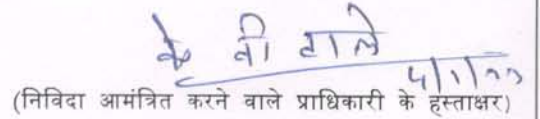 के वी टाले
(निविदा आमंत्रित करने वाले प्राधिकारी के हस्ताक्षर)